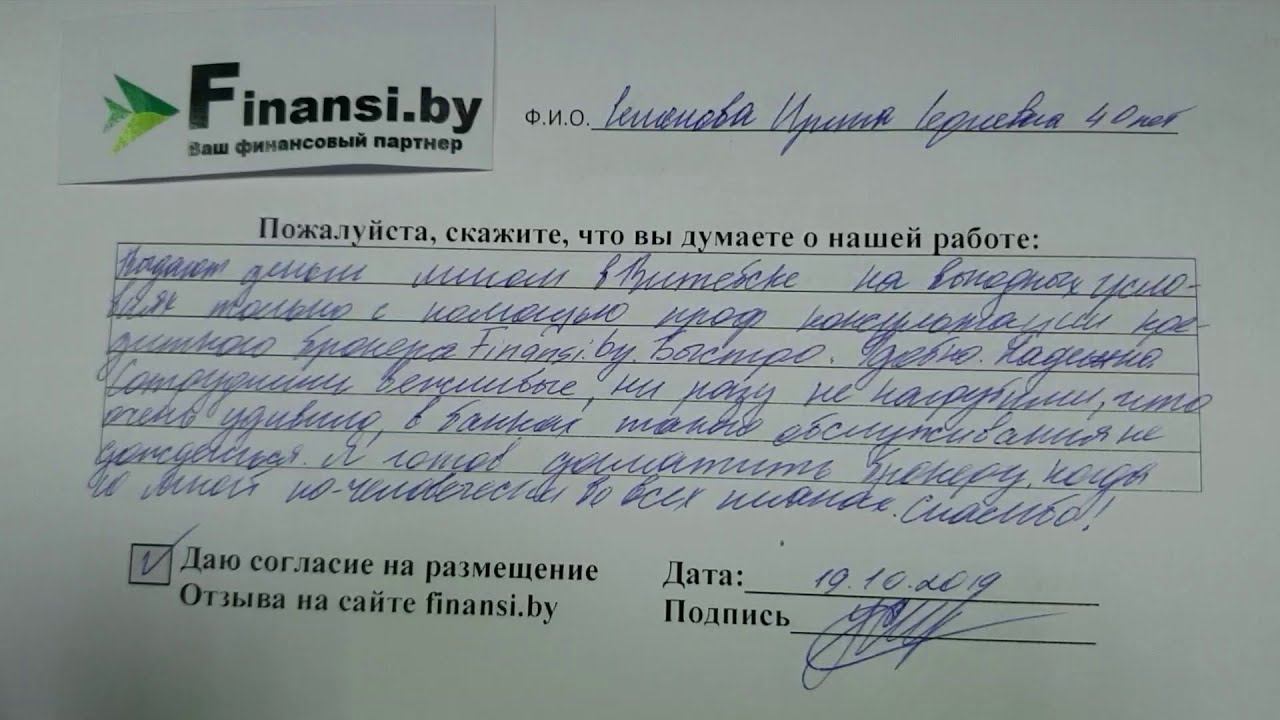 Finansi.by
Ваш финансовый партнер
Ф.И.О. Ирина 40 лет
Пожалуйста, скажите, что вы думаете о нашей работе:
Выдают деньги в Витебске на выгодных усло-
виях только с помощью проф консультации кре-
дитного брокера Finansi.by. Быстро. Удобно. Надежно
Сотрудники вежливые, ни разу не нагрубили, что
очень удивило, в банках такого обслуживания не
дождешься. Я готов доплатить брокеру, когда
со мной по-человечески во всех планах. Спасибо!
Даю согласие на размещение
Отзыва на сайте finansi.by
Дата: 19.10.2019
Подпись